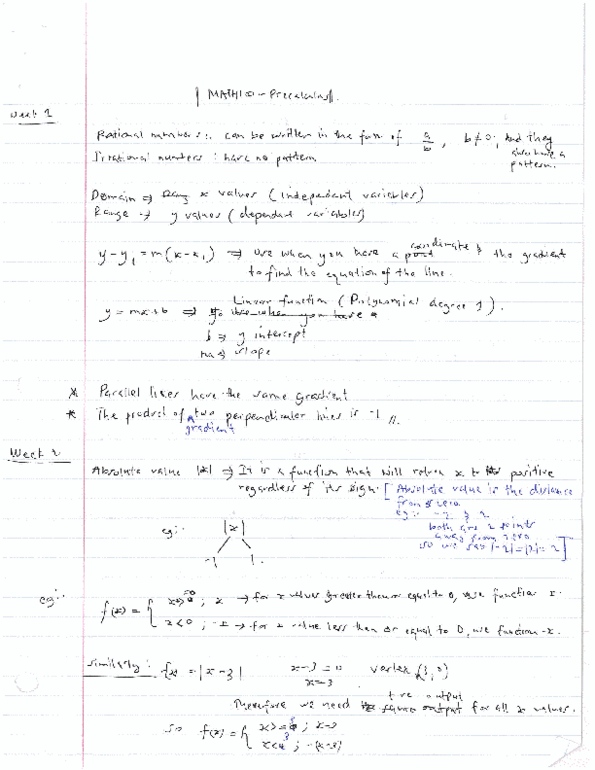 MATH100 - Precalculus
Week 1
Rational numbers: can be written in the form of a/b, b≠0, and they also have a pattern.
Irrational numbers: have no pattern
Domain ⇒ x values (independant variables)
Range → y values (dependant variables)
y-y₁ = m(x-x₁) ⇒ use when you have a point coordinate & the gradient
to find the equation of the line.
y = mx+b ⇒ Linear function (Polynomial degree 1).
b ⇒ y intercept
m ⇒ slope
* Parallel lines have the same gradient
* The product of two perpendicular lines is -1 //.
gradient
Week 2
Absolute value |x| ⇒ It is a function that will return x to positive
regardless of its sign. [Absolute value is the distance
from zero
eg:- -2 & 2
both are 2 points
away from zero
so we say |-2|=|2|=2]
eg:- |x|
-1 1
eg:- f(x) = { x>=0 ; x → for x values greater than or equal to 0, use function x.
x<0 ; -x → for x value less than or equal to 0, use function -x.
Similarly: fx = |x-3| x-3=0 vertex (3,0)
x=3
+ve output
Therefore we need output for all x values.
So f(x) = { x>=3 ; x-3
x<3 ; -(x-3)